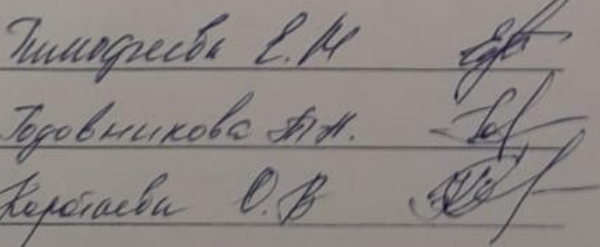 Тимофеева Е.М
Годовникова Т.Н.
Коротаева О.В